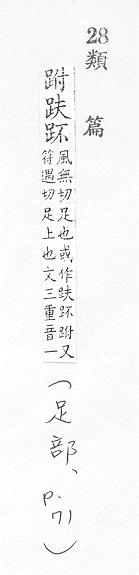 28
類
篇
跗趺䟔
風無切足也或作趺䟔跗又
符遇切足上也文三重音一
(足部、p.71)